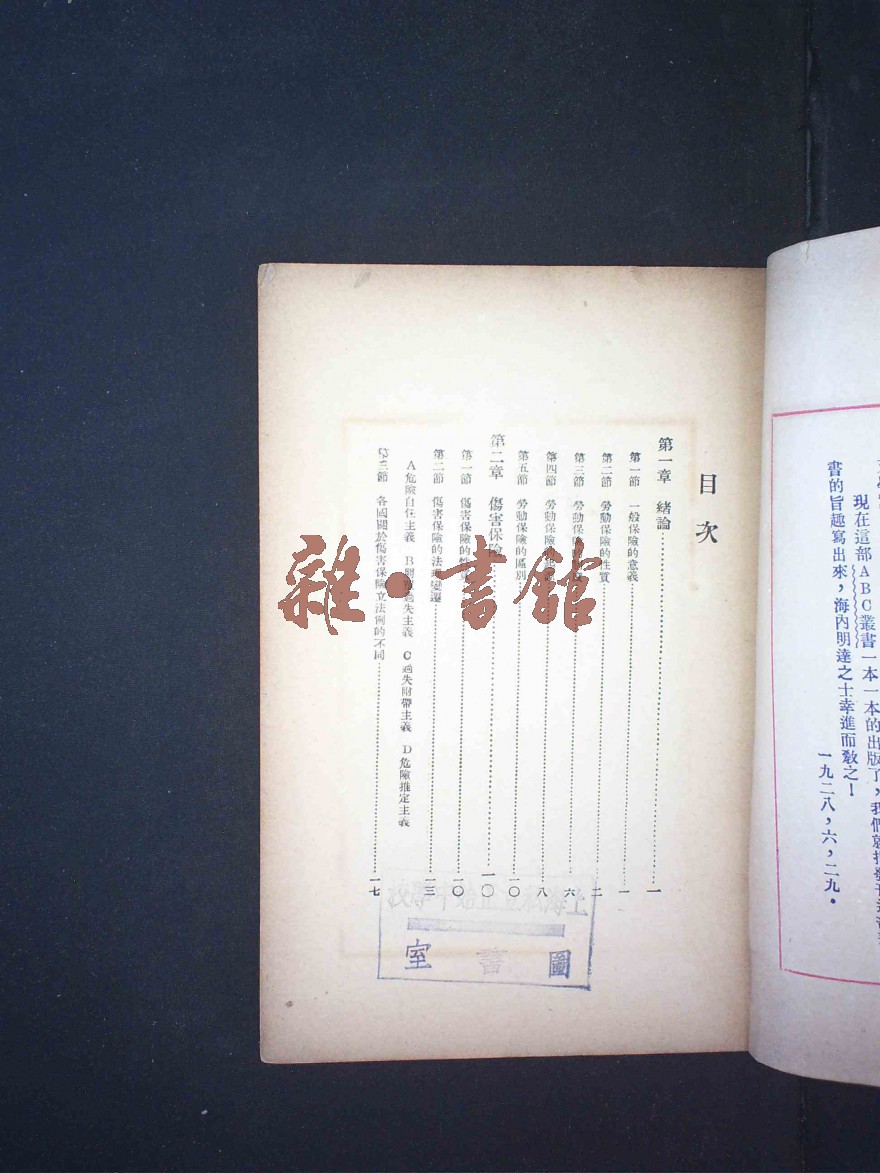 現在這部ABC叢書一本一本的出版了,我們就
書的旨趣寫出來,海內明達之士幸進而教之!
一九二八,六,二九。
目次
第一章 緒論 一
第一節 一般保險的意義 一
第二節 勞動保險的性質 二
第三節 勞動保險 六
第四節 勞動保險 八
第五節 勞動保險的區別 一〇
第二章 傷害保險 一〇
第一節 傷害保險的性 一〇
第二節 傷害保險的法理變遷 一三
A危險自任主義 B 過失主義 C過失附帶主義 D危險推定主義
第三節 各國關於傷害保險立法例的不同 一七
上海 中學校
圖書室
雜·書館